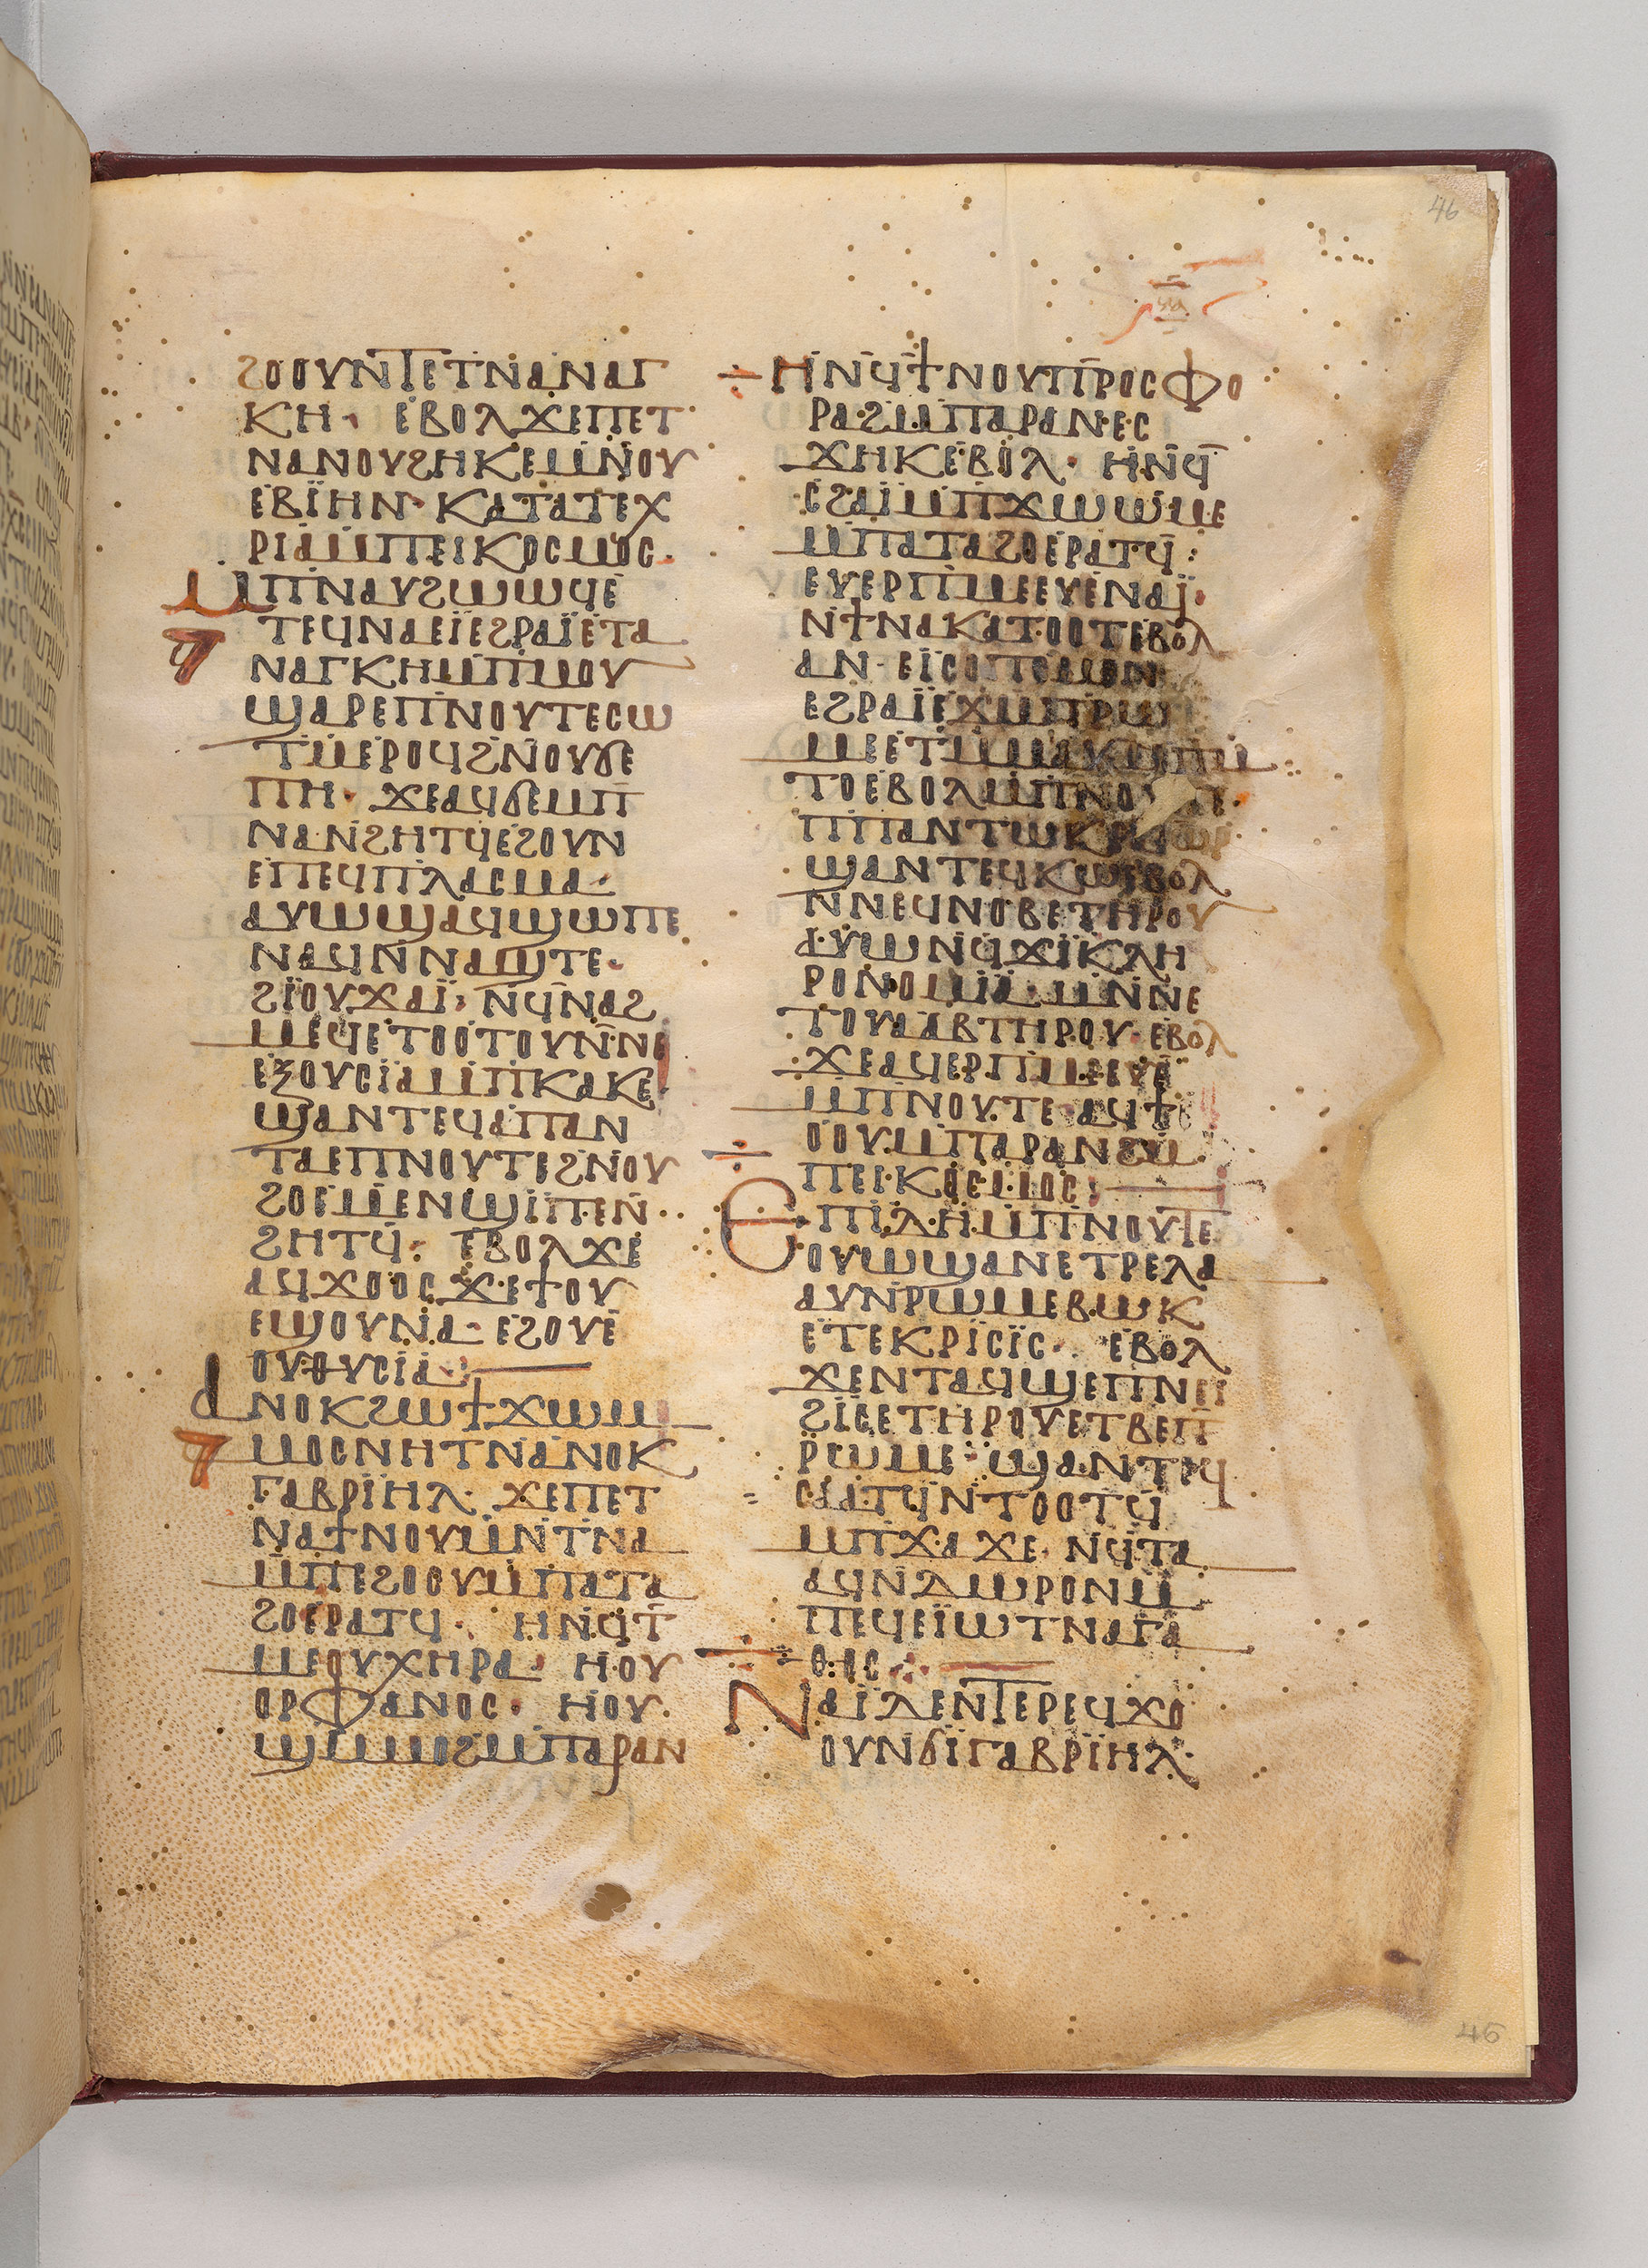 46
ϩⲟⲟⲩ ⲛ̄ⲧⲉⲧⲛ̄ⲁⲛⲁⲅ
ⲕⲏ· ⲉⲃⲟⲗ ϫⲉ ⲡⲉⲧ
ⲛⲁ ⲛⲟⲩϩⲏⲕⲉ ⲙⲛ̄ ⲟⲩ
ⲉⲃⲓⲏⲛ· ⲕⲁⲧⲁ ⲧⲉⲭ
ⲣⲓⲁ ⲙ̄ⲡⲉⲓⲕⲟⲥⲙⲟⲥ·
ⲙ̄ⲡⲛⲁⲩ ϩⲱⲱϥ ⲉ
ⲧⲉϥⲛⲁⲉⲓ ⲉϩⲣⲁⲓ̈ ⲉⲧⲁ
ⲛⲁⲅⲕⲏ ⲙ̄ⲡⲙⲟⲩ
ϣⲁⲣⲉⲡⲛⲟⲩⲧⲉ ⲥⲱ
ⲧⲙ̄ ⲉⲣⲟϥ ϩⲛ̄ ⲟⲩϭⲉ
ⲡⲏ· ϫⲉ ⲁϥϭⲉⲙⲡ
ⲛⲁ ⲛ̄ϩⲏⲧϥ ⲉϩⲟⲩⲛ
ⲉⲡⲉϥⲡⲗⲁⲥⲙⲁ·
ⲁⲩⲱ ϣⲁϥϣⲱⲡⲉ
ⲛⲁϥ ⲛ̄ⲛⲁϣⲧⲉ·
ϩⲓ ⲟⲩϫⲁⲓ̈· ⲛϥ̄ⲛⲁϩ
ⲙⲉϥ ⲉⲧⲟⲟⲧⲟⲩ ⲛ̄ⲛⲉ
ⲉⲝⲟⲩⲥⲓⲁ ⲙ̄ⲡⲕⲁⲕⲉ
ϣⲁⲛⲧⲉϥⲁⲡⲁⲛ
ⲧⲁ ⲉⲡⲛⲟⲩⲧⲉ ϩⲛ̄ ⲟⲩ
ϩⲟ ⲉⲙⲉⲛϣⲓⲡⲉ ⲛ̄
ϩⲏⲧϥ̄· ⲉⲃⲟⲗ ϫⲉ
ⲁϥϫⲟⲟⲥ ϫⲉ ϯⲟⲩ
ⲉϣ ⲟⲩⲛⲁ· ⲉϩⲟⲩⲉ
ⲟⲩⲑⲩⲥⲓⲁ·
ⲁⲛⲟⲕ ϩⲱ ϯϫⲱ ⲙ̄
ⲙⲟⲥ ⲛⲏⲧⲛ̄ ⲁⲛⲟⲕ
ⲅⲁⲃⲣⲓⲏⲗ· ϫⲉ ⲡⲉⲧ
ⲛⲁϯ ⲛⲟⲩⲙⲛ̄ⲧⲛⲁ
ⲙ̄ⲡⲉϩⲟⲟⲩ ⲙ̄ⲡⲁⲧⲁ
ϩⲟ ⲉⲣⲁⲧϥ· ⲏ ⲛϥ̄ⲧ
ⲙⲉ ⲟⲩⲭⲏⲣⲁ· ⲏ ⲟⲩ
ⲟⲣⲫⲁⲛⲟⲥ· ⲏ ⲟⲩ
ϣⲙ̄ⲙⲟ ϩⲙ̄ ⲡⲁⲣⲁⲛ
ⲏ ⲛϥ̄ϯ ⲛⲟⲩⲡⲣⲟⲥⲫⲟ
ⲣⲁ ϩⲙ̄ ⲡⲁⲣⲁⲛ ⲉⲥ
ϫⲏⲕ ⲉⲃⲟⲗ· ⲏ ⲛϥ̄
ⲥϩⲁⲓ ⲙ̄ⲡϫⲱⲱⲙⲉ
ⲙ̄ⲡⲁⲧⲁϩⲟ ⲉⲣⲁⲧϥ̄:
ⲉⲩⲉⲣⲡⲙⲉⲉⲩⲉ ⲛⲁⲓ̈·
ⲛ̄ϯⲛⲁⲕⲁⲧⲟⲟⲧ ⲉⲃⲟⲗ
ⲁⲛ· ⲉⲓⲥⲟⲡⲥ
ⲉϩⲣⲁⲓ̈ ⲉϫⲙ̄ ⲡⲣⲱ
ⲙⲉ ⲉⲧⲙ̄ⲙⲁⲩ
ⲧⲟ ⲉⲃⲟⲗ ⲙ̄ⲡⲛⲟⲩⲧⲉ
ⲡⲡⲁⲛⲧⲱⲕⲣⲁⲧⲱⲣ
ϣⲁⲛⲧⲉϥⲕⲱ ⲉⲃⲟⲗ
ⲛ̄ⲛⲉϥⲛⲟⲃⲉ ⲧⲏⲣⲟⲩ
ⲁⲩⲱ ⲛϥ̄ϫⲓ ⲕⲗⲏ
ⲣⲟⲛⲟⲙⲓⲁ ⲙⲛ̄ ⲛⲉ
ⲧⲟⲩⲁⲁⲃ ⲧⲏⲣⲟⲩ· ⲉⲃⲟⲗ
ϫⲉ ⲁϥⲉⲣⲡⲙⲉⲉⲩⲉ
ⲙ̄ⲡⲛⲟⲩⲧⲉ ⲁϥϯ
ⲟⲟⲩ ⲙ̄ⲡⲁⲣⲁⲛ ϩⲙ̄
ⲡⲉⲓⲕⲟⲥⲙⲟⲥ:
ⲉⲡⲓⲇⲏ ⲙ̄ⲡⲛⲟⲩⲧⲉ
ⲟⲩⲱϣ ⲁⲛ ⲉⲧⲣⲉⲗⲁ
ⲁⲩ ⲛ̄ⲣⲱⲙⲉ ⲃⲱⲕ
ⲉⲧⲉⲕⲣⲓⲥⲓⲥ· ⲉⲃⲟⲗ
ϫⲉ ⲛⲧⲁϥϣⲉⲡ ⲛⲉⲓ
ϩⲓⲥⲉ ⲧⲏⲣⲟⲩ ⲉⲧⲃⲉ ⲡ
ⲣⲱⲙⲉ· ϣⲁⲛⲧϥ
ⲥⲁⲧϥ ⲛ̄ⲧⲟⲟⲧϥ̄
ⲙ̄ⲡϫⲁϫⲉ· ⲛϥ̄ⲧⲁ
ⲁϥ ⲛ̄ⲇⲱⲣⲟⲛ ⲙ̄
ⲡⲉϥⲉⲓⲱⲧ ⲛⲁⲅⲁ
ⲑⲟⲥ
ⲛⲁⲓ ⲇⲉ ⲛ̄ⲧⲉⲣⲉϥϫⲟ
ⲟⲩ ⲛ̄ϭⲓ ⲅⲁⲃⲣⲓⲏⲗ·
46